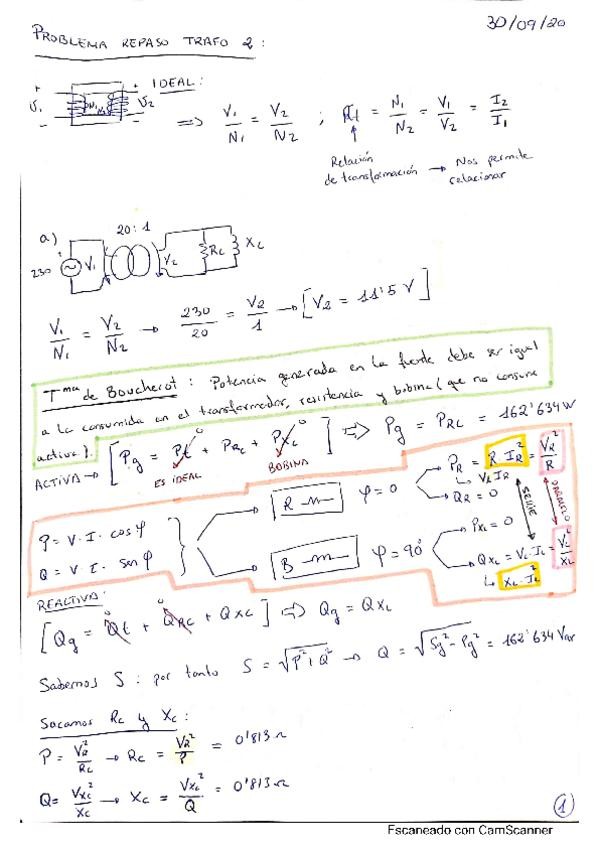 30/09/20
PROBLEMA REPASO TRAFO 2:
IDEAL:
+ +
V1 N1 N2 V2
- -
=> V1/N1 = V2/N2 ; rt = N1/N2 = V1/V2 = I2/I1
Relación de transformación → Nos permite relacionar
a) 20:1
230 V1 V2 RC XL
V1/N1 = V2/N2 → 230/20 = V2/1 → [V2 = 11'5 V]
Tma de Boucherot: Potencia generada en la fuente debe ser igual
a la consumida en el transformador, resistencia y bobina (que no consume
activa).
ACTIVA → [Pg = Pt + PRC + PXC] => Pg = PRC = 162'634W
0 0
ES IDEAL BOBINA
P = V·I·cosφ
Q = V I·senφ
R φ=0
PR = R·IR² = VR²/R
↳ VR IR
QR = 0
B φ=90°
PXL = 0
QXL = VL·IL = VL²/XL
↳ XL·IL²
SERIE PARALELO
REACTIVA:
0 0
[Qg = Qt + QRC + QXC] => Qg = QXL
Sabemos S: por tanto S = √P²+Q² → Q = √Sg²-Pg² = 162'634 Var
Sacamos RC y XC:
P = VR²/RC → RC = VR²/P = 0'813 Ω
Q = VXC²/XC → XC = VXC²/Q = 0'813 Ω
1
Escaneado con CamScanner